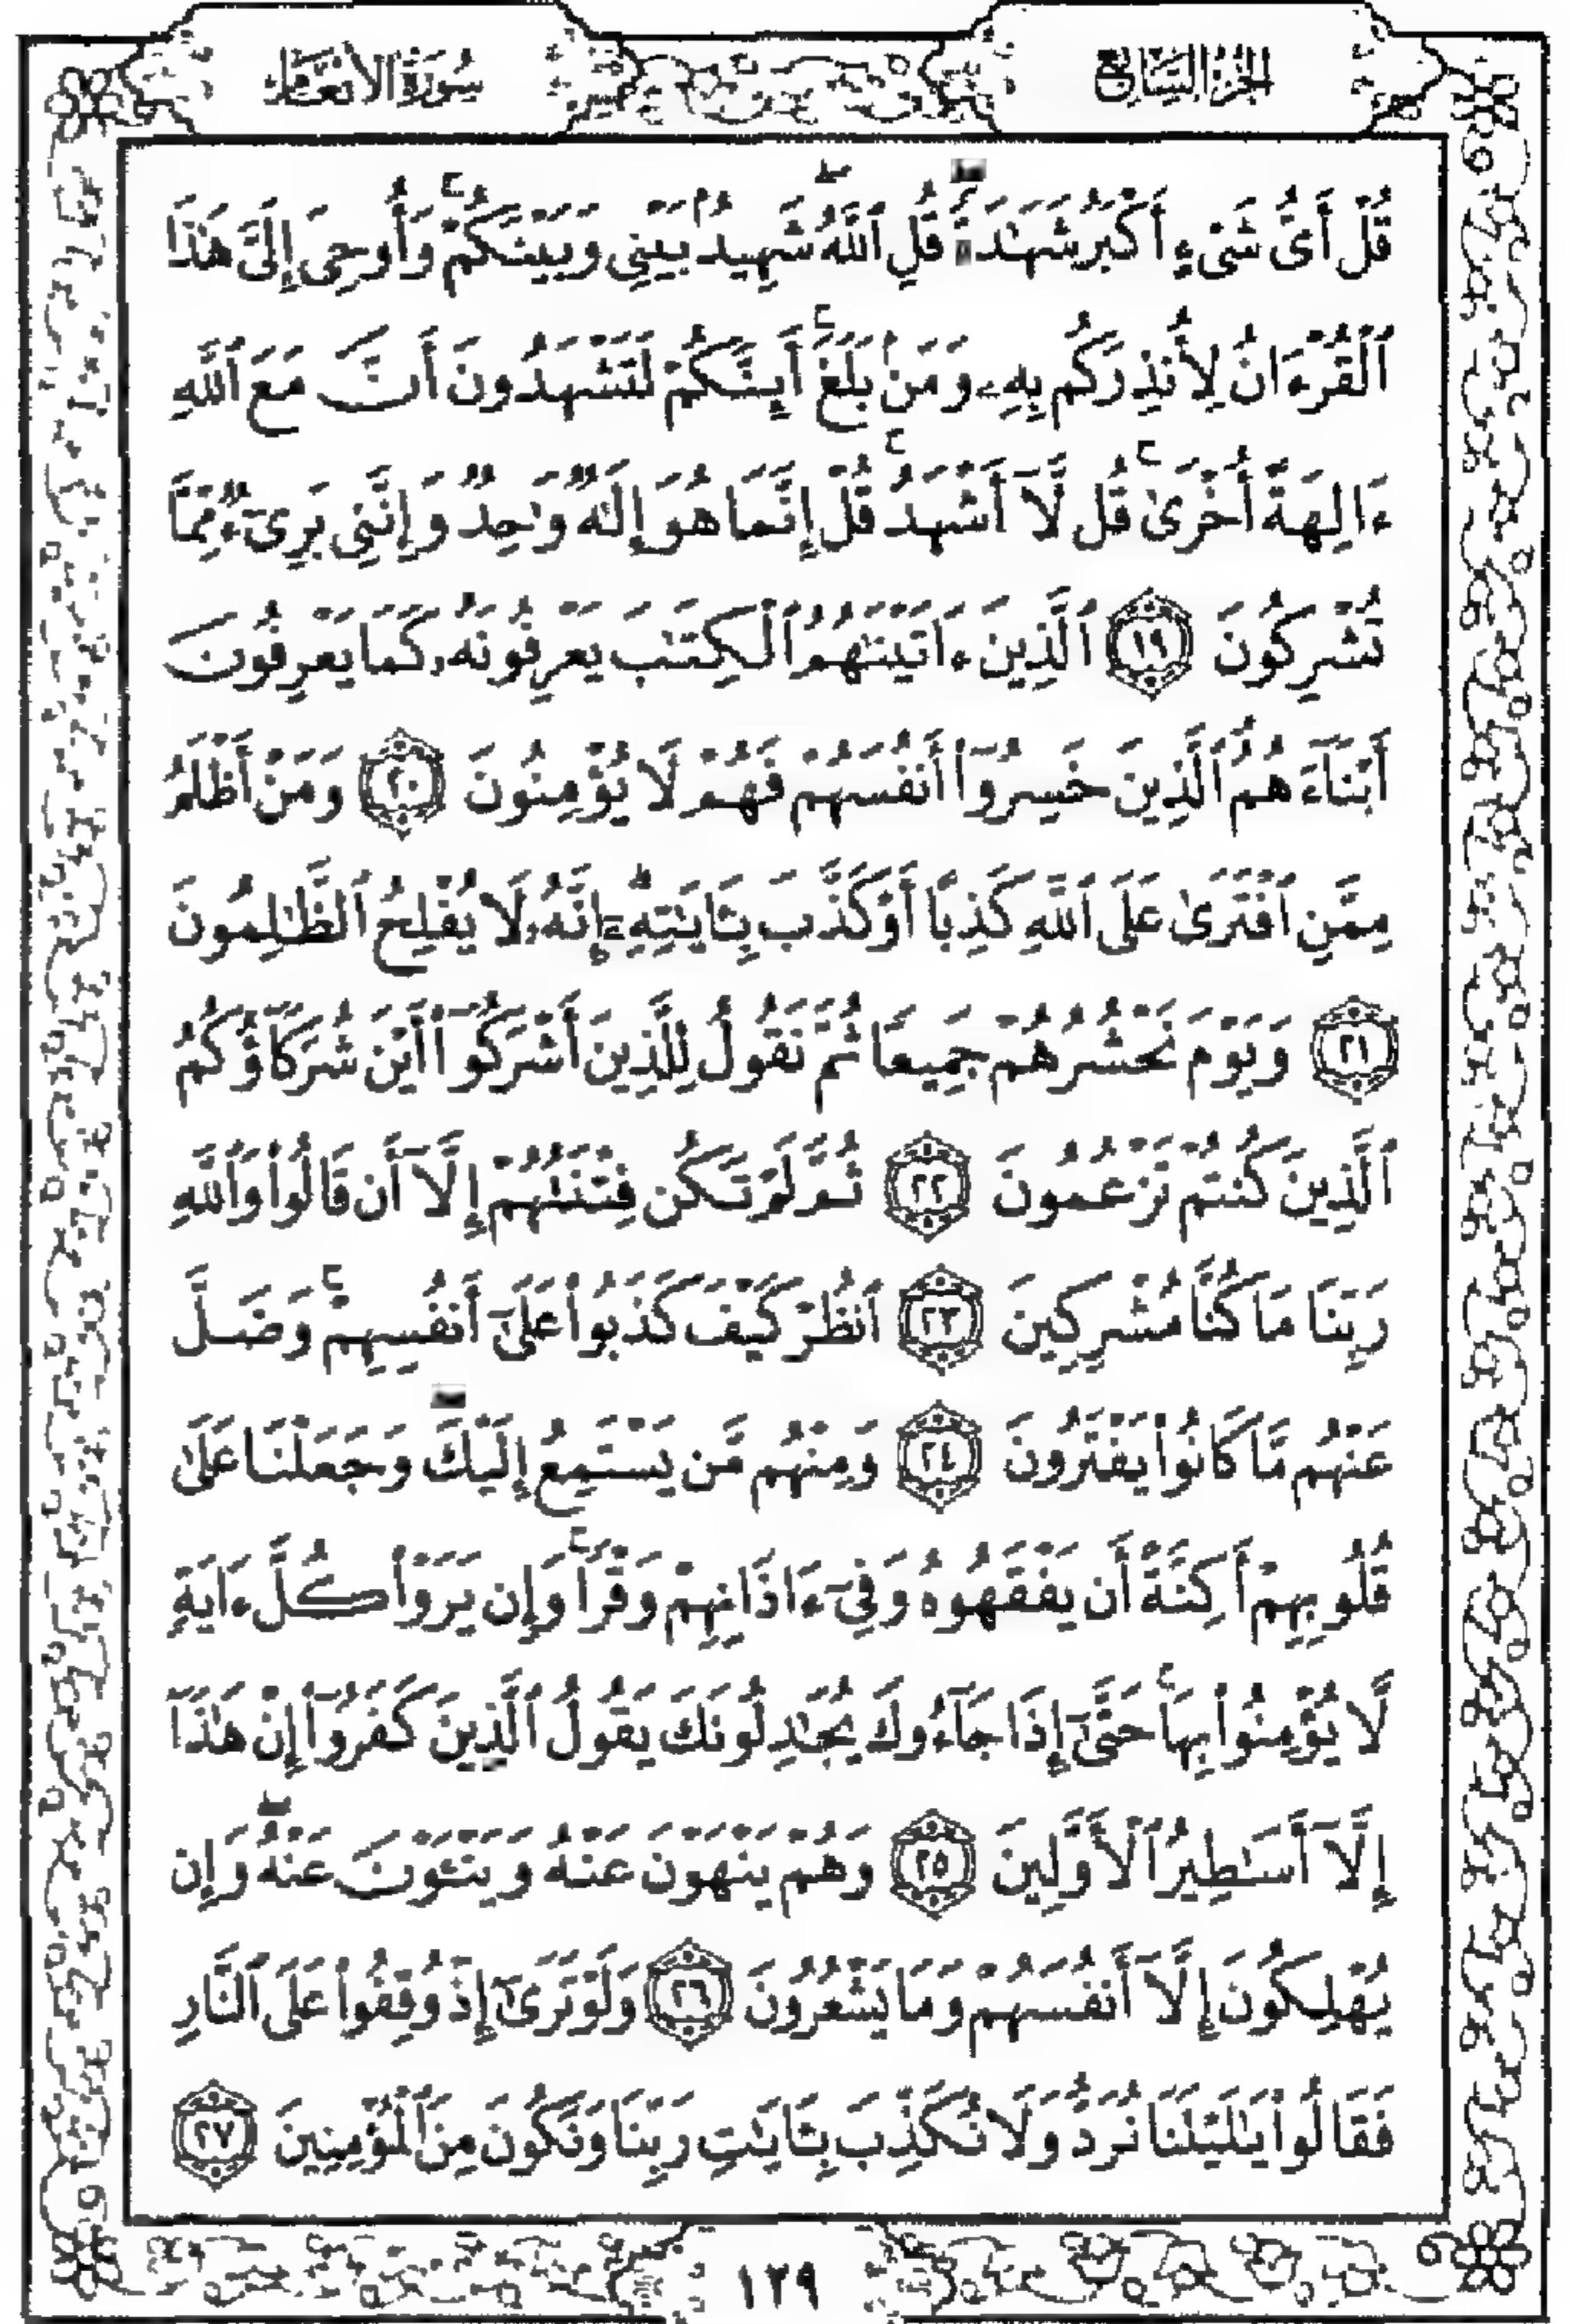 الجزء السابع
سورة الأنعام
قُلْ أَىُّ شَىْءٍ أَكْبَرُ شَهَٰدَةً ۖ قُلِ ٱللَّهُ ۖ شَهِيدٌۢ بَيْنِى وَبَيْنَكُمْ ۚ وَأُوحِىَ إِلَىَّ هَٰذَا
ٱلْقُرْءَانُ لِأُنذِرَكُم بِهِۦ وَمَنۢ بَلَغَ ۚ أَئِنَّكُمْ لَتَشْهَدُونَ أَنَّ مَعَ ٱللَّهِ
ءَالِهَةً أُخْرَىٰ ۚ قُل لَّآ أَشْهَدُ ۚ قُلْ إِنَّمَا هُوَ إِلَٰهٌ وَٰحِدٌ وَإِنَّنِى بَرِىٓءٌ مِّمَّا
تُشْرِكُونَ ١٩ ٱلَّذِينَ ءَاتَيْنَٰهُمُ ٱلْكِتَٰبَ يَعْرِفُونَهُۥ كَمَا يَعْرِفُونَ
أَبْنَآءَهُمُ ٱلَّذِينَ خَسِرُوٓا۟ أَنفُسَهُمْ فَهُمْ لَا يُؤْمِنُونَ ٢٠ وَمَنْ أَظْلَمُ
مِمَّنِ ٱفْتَرَىٰ عَلَى ٱللَّهِ كَذِبًا أَوْ كَذَّبَ بِـَٔايَٰتِهِۦٓ ۗ إِنَّهُۥ لَا يُفْلِحُ ٱلظَّٰلِمُونَ
٢١ وَيَوْمَ نَحْشُرُهُمْ جَمِيعًا ثُمَّ نَقُولُ لِلَّذِينَ أَشْرَكُوٓا۟ أَيْنَ شُرَكَآؤُكُمُ
ٱلَّذِينَ كُنتُمْ تَزْعُمُونَ ٢٢ ثُمَّ لَمْ تَكُن فِتْنَتُهُمْ إِلَّآ أَن قَالُوا۟ وَٱللَّهِ
رَبِّنَا مَا كُنَّا مُشْرِكِينَ ٢٣ ٱنظُرْ كَيْفَ كَذَبُوا۟ عَلَىٰٓ أَنفُسِهِمْ ۚ وَضَلَّ
عَنْهُم مَّا كَانُوا۟ يَفْتَرُونَ ٢٤ وَمِنْهُم مَّن يَسْتَمِعُ إِلَيْكَ ۖ وَجَعَلْنَا عَلَىٰ
قُلُوبِهِمْ أَكِنَّةً أَن يَفْقَهُوهُ وَفِىٓ ءَاذَانِهِمْ وَقْرًا ۚ وَإِن يَرَوْا۟ كُلَّ ءَايَةٍ
لَّا يُؤْمِنُوا۟ بِهَا ۚ حَتَّىٰٓ إِذَا جَآءُوكَ يُجَٰدِلُونَكَ يَقُولُ ٱلَّذِينَ كَفَرُوٓا۟ إِنْ هَٰذَآ
إِلَّآ أَسَٰطِيرُ ٱلْأَوَّلِينَ ٢٥ وَهُمْ يَنْهَوْنَ عَنْهُ وَيَنْـَٔوْنَ عَنْهُ ۖ وَإِن
يُهْلِكُونَ إِلَّآ أَنفُسَهُمْ وَمَا يَشْعُرُونَ ٢٦ وَلَوْ تَرَىٰٓ إِذْ وُقِفُوا۟ عَلَى ٱلنَّارِ
فَقَالُوا۟ يَٰلَيْتَنَا نُرَدُّ وَلَا نُكَذِّبَ بِـَٔايَٰتِ رَبِّنَا وَنَكُونَ مِنَ ٱلْمُؤْمِنِينَ ٢٧
١٢٩